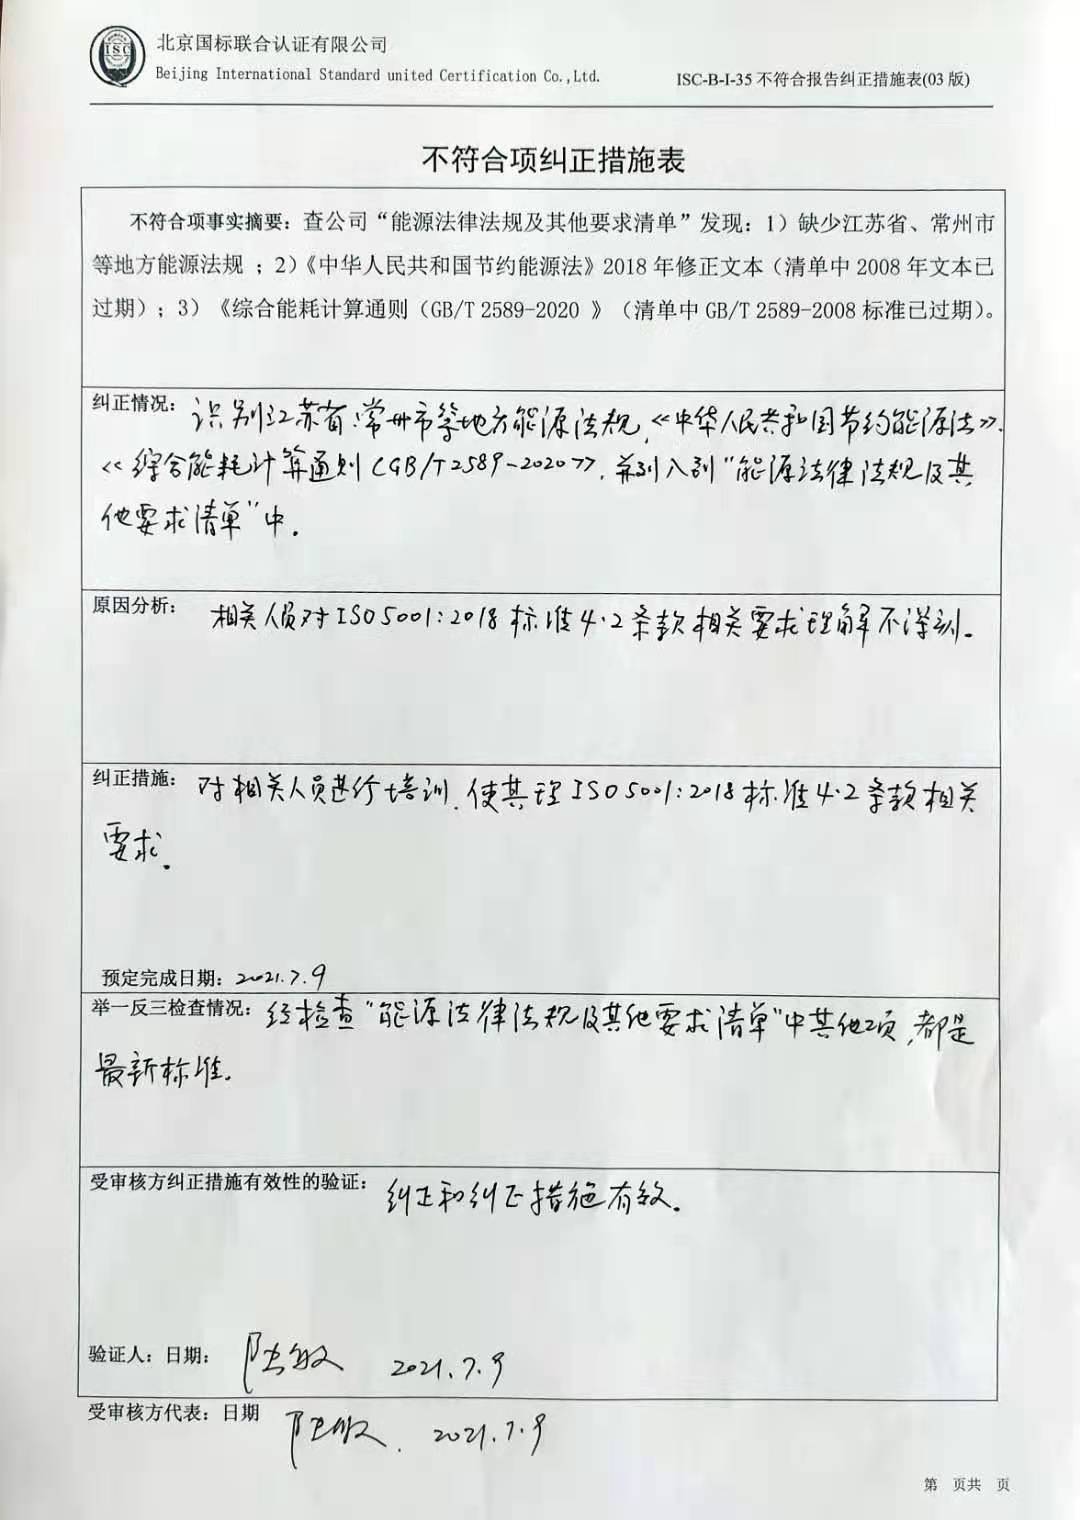 ISC
北京国标联合认证有限公司
Beijing International Standard united Certification Co.,Ltd.
ISC-B-I-35 不符合报告纠正措施表(03 版)
不符合项纠正措施表
不符合项事实摘要：查公司“能源法律法规及其他要求清单”发现：1）缺少江苏省、常州市
等地方能源法规 ；2）《中华人民共和国节约能源法》2018 年修正文本（清单中 2008 年文本已
过期）；3）《综合能耗计算通则（GB/T 2589-2020 》（清单中 GB/T 2589-2008 标准已过期）。
纠正情况：识别江苏省、常州市等地方能源法规，《中华人民共和国节约能源法》、
《综合能耗计算通则（GB/T2589-2020》，并列入到“能源法律法规及其
他要求清单”中。
原因分析：相关人员对ISO5001:2018标准4.2条款相关要求理解不深刻。
纠正措施：对相关人员进行培训，使其理ISO5001:2018标准4.2条款相关
要求。
预定完成日期：2021.7.9
举一反三检查情况：经检查“能源法律法规及其他要求清单”中其他项，都是
最新标准。
受审核方纠正措施有效性的验证：纠正和纠正措施有效。
验证人：日期：敏 2021.7.9
受审核方代表：日期 敏 2021.7.9
第 页共 页